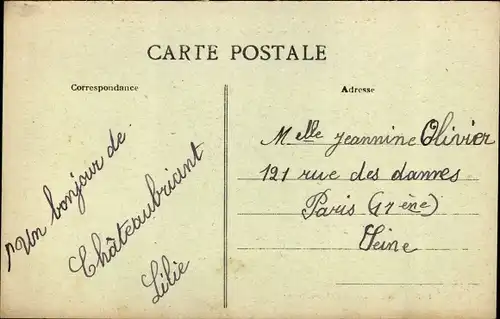 CARTE POSTALE
Correspondance
Adresse
Un bonjour de
Châteaubriant
Lilie
Melle Jeannine Olivier
121 rue des dames
Paris (17ène)
Seine